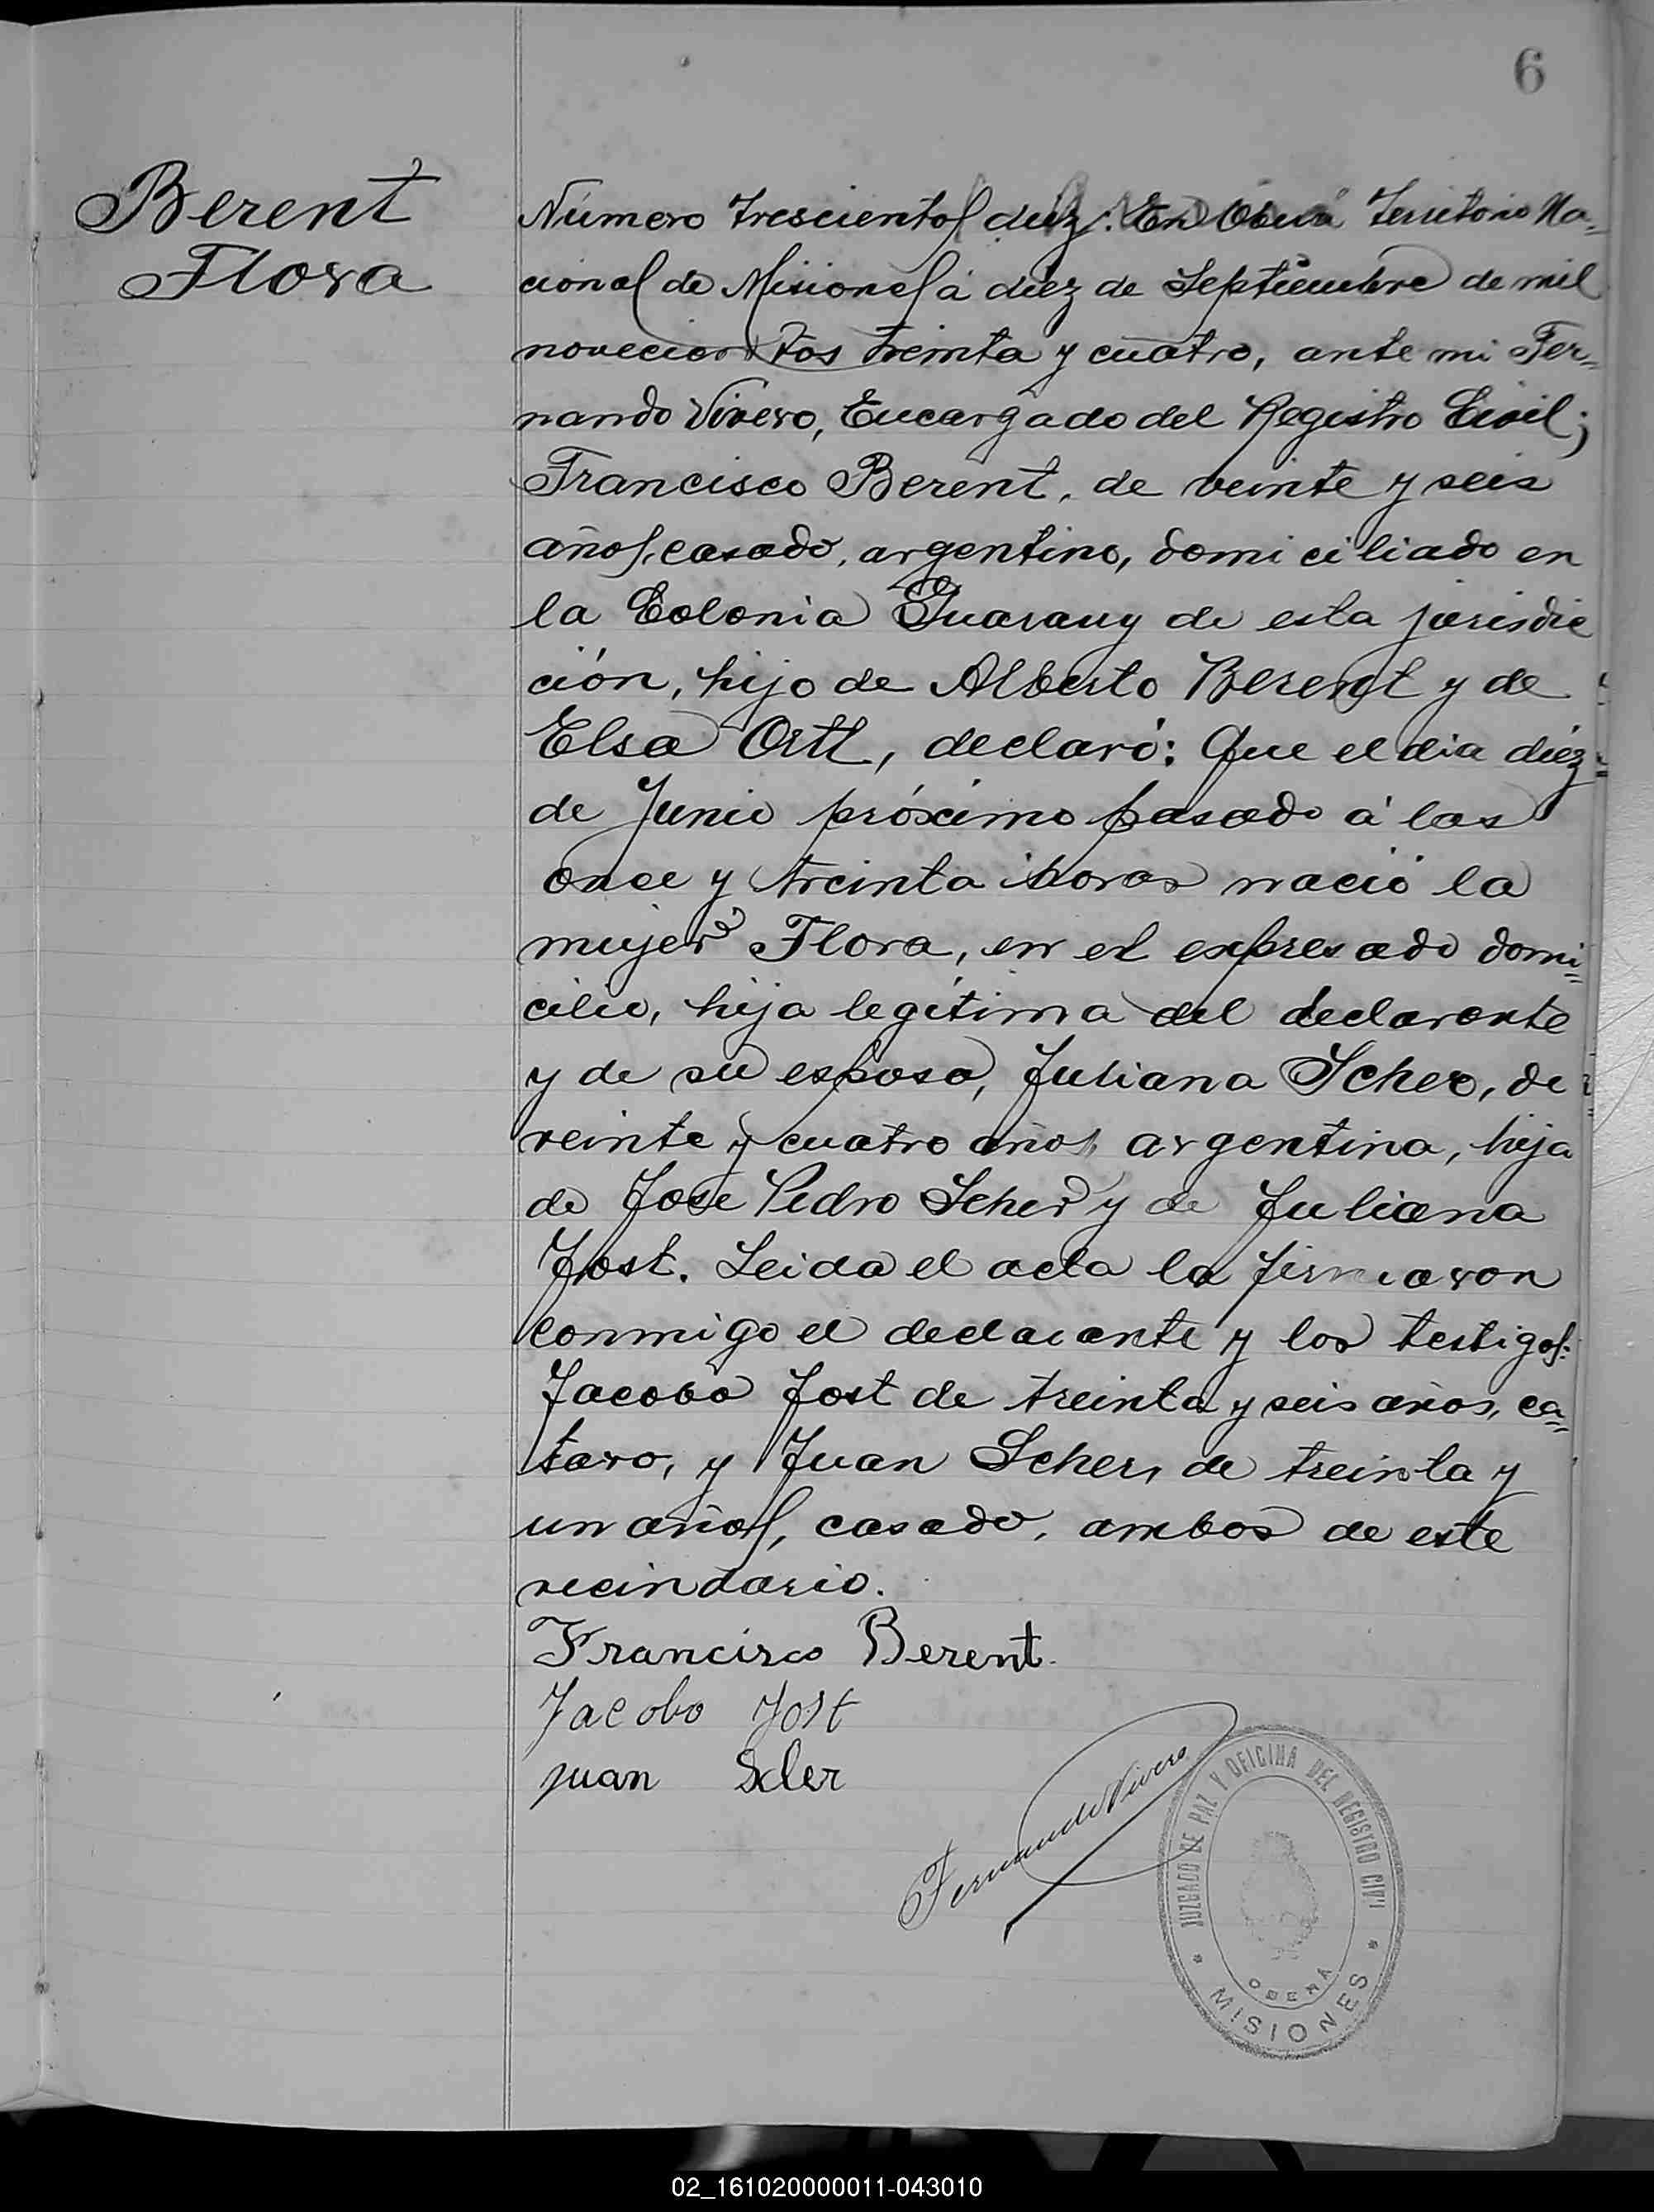 6
Berent
Flora
Número trescientos diez: En Oberá Territorio Na=
cional de Misiones á diez de Septiembre de mil
novecientos treinta y cuatro, ante mi Fer=
nando Vivero, Encargado del Registro Civil;
Francisco Berent, de veinte y seis
años, casado, argentino, domiciliado en
la Colonia Guarany de esta jurisdic
ción, hijo de Alberto Berent y de
Elsa Ortt, declaró: Que el dia diéz
de Junio próximo pasado á las
once y treinta horas nació la
mujer Flora, en el expresado domi=
cilio, hija legítima del declarante
y de su esposa, Juliana Scher, de
veinte y cuatro años, argentina, hija
de Jose Pedro Scher y de Juliana
Jost. Leida el acta la firmaron
conmigo el declarante y los testigos:
Jacobo Jost de treinta y seis años, ca=
saro, y Juan Scher, de treinta y
un años, casado, ambos de este
vecindario.
Francisco Berent.
Jacobo Jost
juan Scher
Fernando Vivero
JUZGADO DE PAZ Y OFICINA DEL REGISTRO CIVIL
OBERÁ
* MISIONES *
02_161020000011-043010